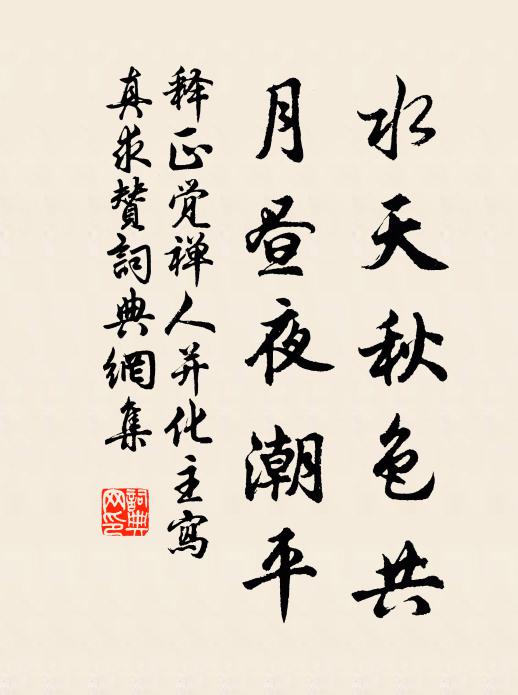 水天秋色共
月昼夜潮平
释正觉禅人并化主寫
真求賛詞典網集
詞典网印